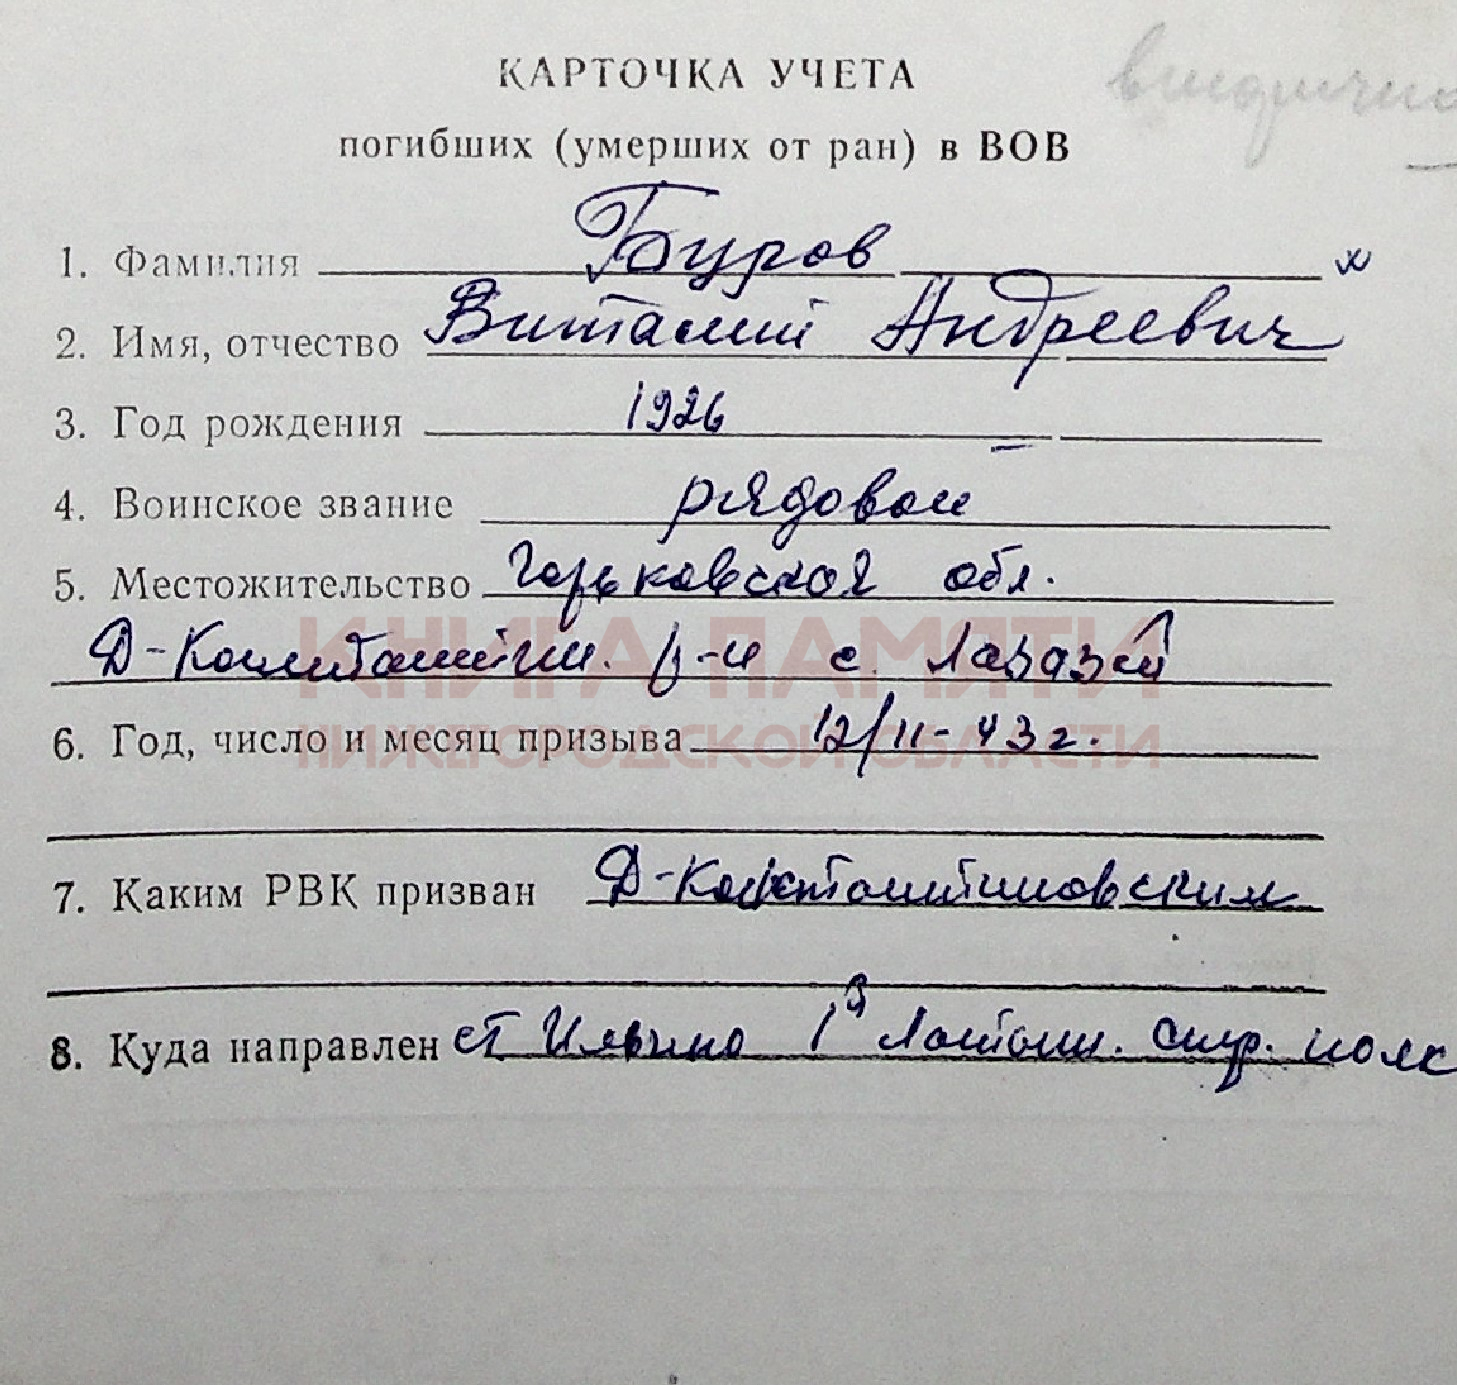 КАРТОЧКА УЧЕТА
погибших (умерших от ран) в ВОВ
1. Фамилия Буров
2. Имя, отчество Виталий Андреевич
3. Год рождения 1926
4. Воинское звание рядовой
5. Местожительство Горьковской обл.
Д-Константин. р-н с. Лазазей
КНИГА ПАМЯТИ
НИЖЕГОРОДСКОЙ ОБЛАСТИ
6. Год, число и месяц призыва 12/11-43 г.
7. Каким РВК призван Д-Константиновским
8. Куда направлен ст Ильино 1й Латыш. стр. полк